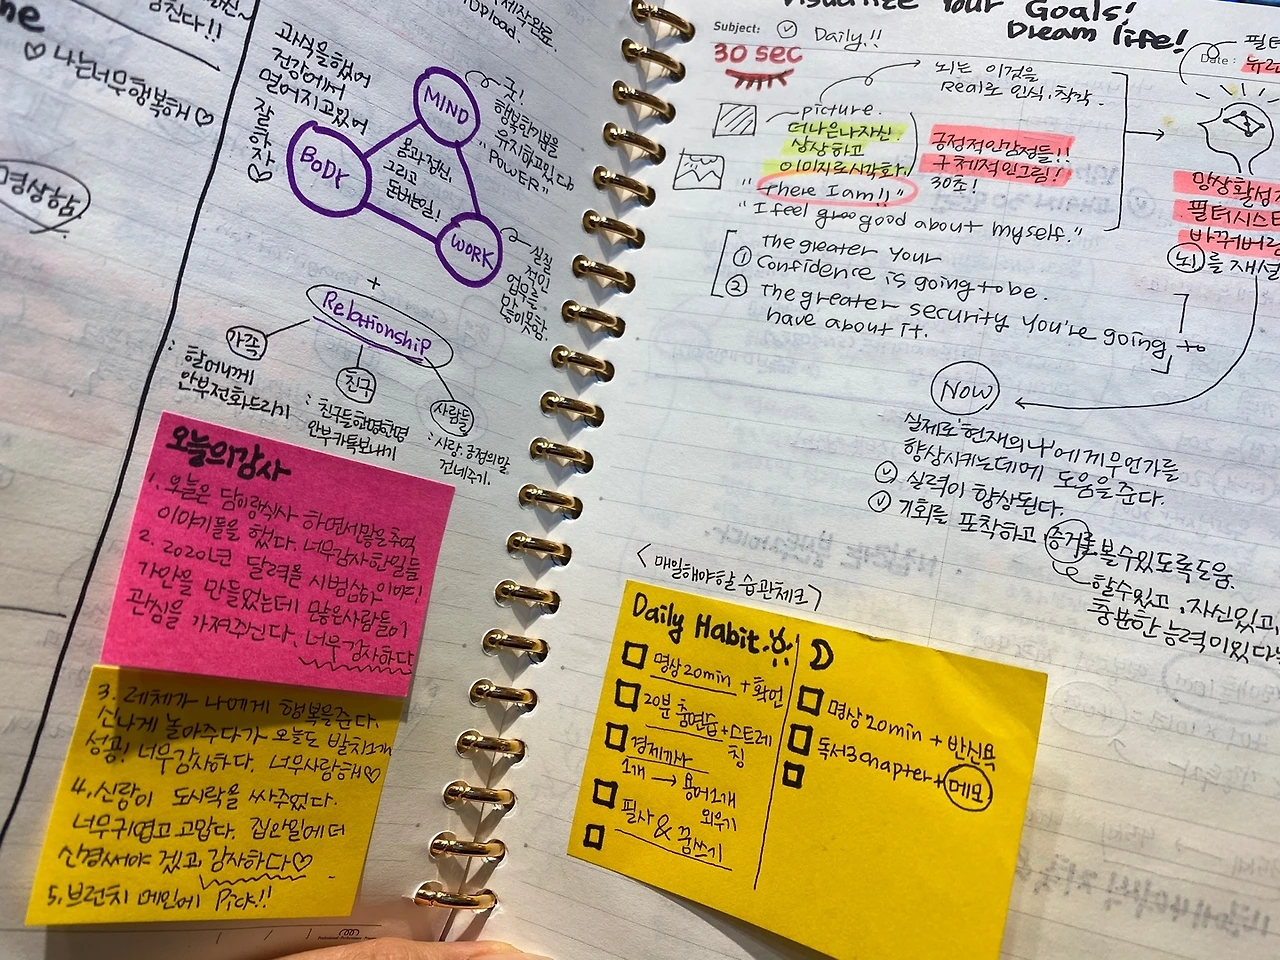 제작완료.
upload.
ne
♡ 나는너무행복해 ♡
명상함
과식을했어
건강에서
멀어지고있어
잘하자♡
MIND
BODY
WORK
굿!
행복한기분을
유지하고있다
"POWER"
용과정신,
그리고
돈버는일!
실질
적인
업무를
많이못함.
+
Relationship
가족
: 할머니께
안부전화드리기
친구
: 친구들한명한명
안부카톡보내기
사람들
: 사랑, 긍정의말
건네주기.
오늘의감사
1. 오늘은 담이랑식사 하면서많은추억
이야기들을 했다. 너무감사한일들
2. 2020년 달력을 시범삼아 이야!
가안을 만들었는데 많은사람들이
관심을 가져주신다. 너무감사하다
3. 레체가 나에게 행복을준다.
신나게 놀아주다가 오늘도 발차1개
성공! 너무감사하다. 너무사랑해♡
4. 신랑이 도시락을 싸주었다.
너무귀엽고 고맙다. 집안일에 더
신경써야 겠고, 감사하다♡
5. 브런치 메인에 Pick!!
Visualize Your Goals!
Dream life!
Subject: ✓ Daily!!
Date:
30 sec
뇌는 이것을
Real로 인식.착각.
picture.
더나은나자신.
상상하고
이미지로시각화.
긍정적인감정들!!
구체적인그림!
30초!
"There I am!!"
"I feel groo good about myself."
① the greater your
Confidence is going to be.
② The greater security you're going to
have about it.
필터
망상활성
필터시스
바꿔버림
뇌를 재설
Now
실제로 '현재의나'에게무언가를
향상시키는데에 도움을준다.
✓ 실력이 향상된다.
✓ 기회를 포착하고, 증거를 볼수있도록도움.
할수있고, 자신있고,
충분한 능력이있다
<매일해야할 습관체크>
Daily Habit.
□ 명상20min + 확언
□ 20분 춤연습 + 스트레
칭
□ 경제기사
1개 → 용어1개
외우기
□ 필사 & 꿈쓰기
□
□ 명상 20min + 반신욕
□ 독서3chapter + 메모
□